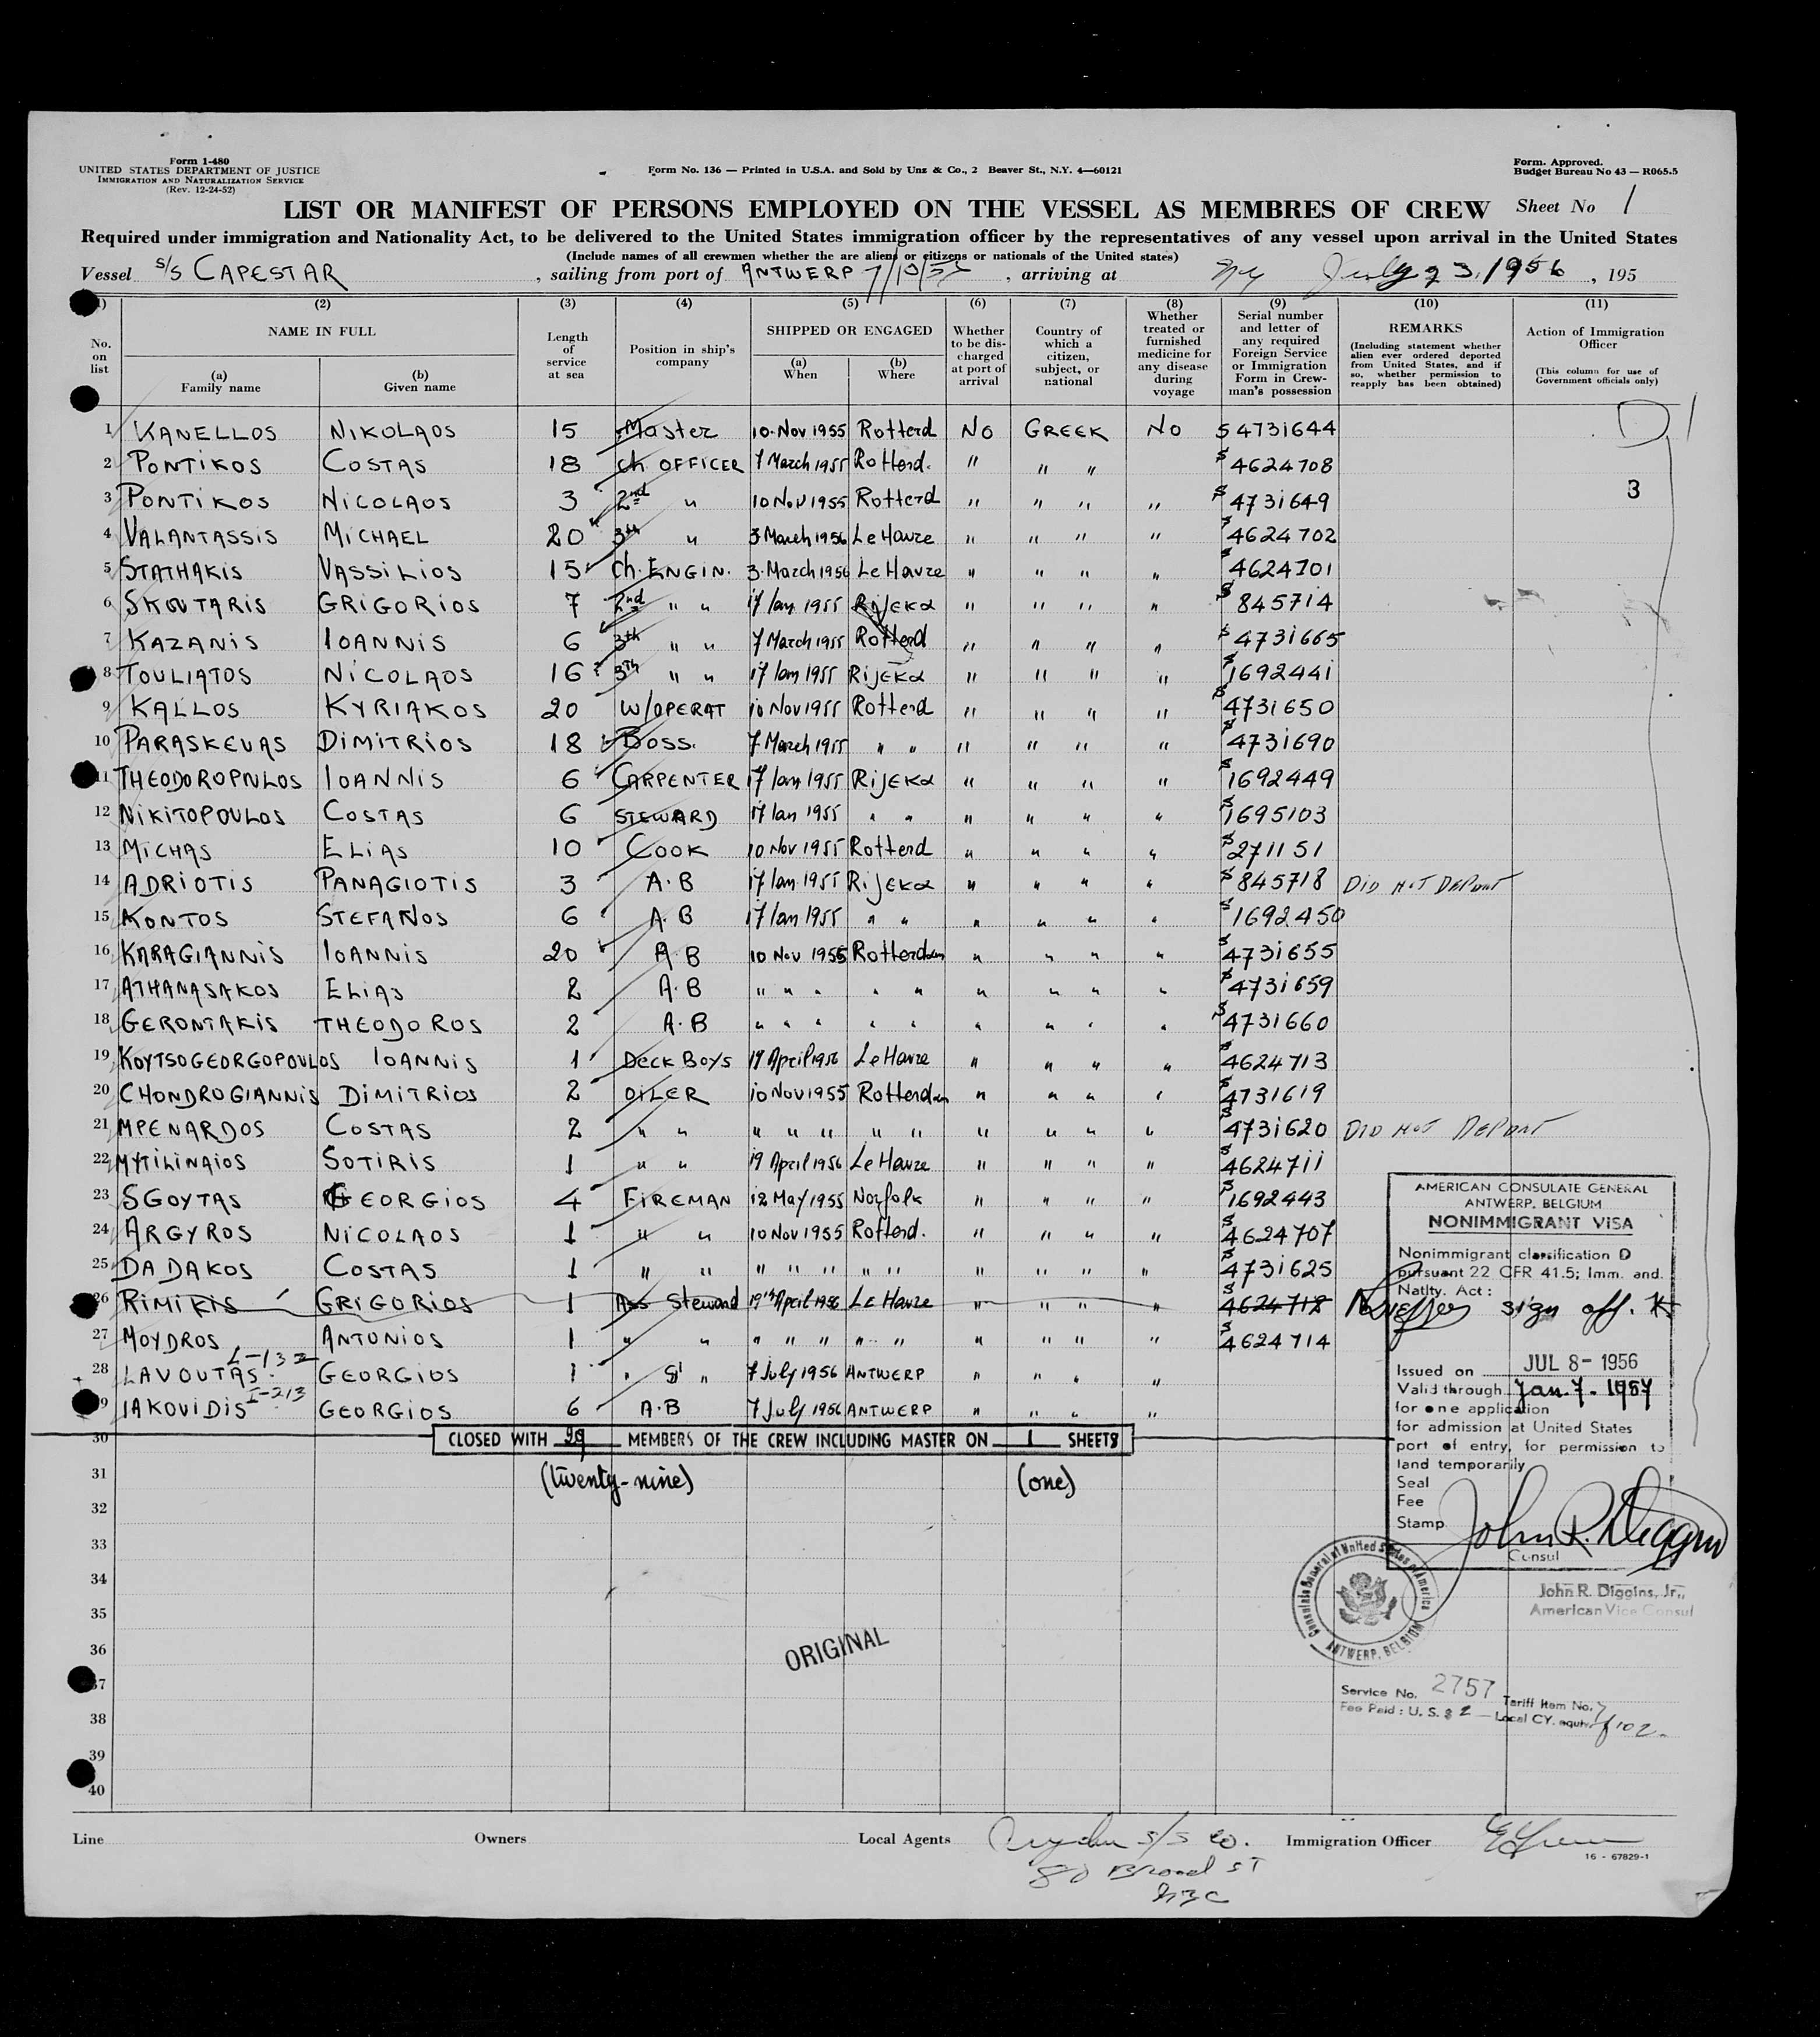 Form 1-480
UNITED STATES DEPARTMENT OF JUSTICE
IMMIGRATION AND NATURALIZATION SERVICE
(Rev. 12-24-52)
Form No. 136 — Printed in U.S.A. and Sold by Unz & Co., 2 Beaver St., N.Y. 4—60121
Form. Approved.
Budget Bureau No 43 — R065.5
LIST OR MANIFEST OF PERSONS EMPLOYED ON THE VESSEL AS MEMBRES OF CREW Sheet No 1
Required under immigration and Nationality Act, to be delivered to the United States immigration officer by the representatives of any vessel upon arrival in the United States
(Include names of all crewmen whether the are aliens or citizens or nationals of the United states)
Vessel S/S CAPESTAR, sailing from port of ANTWERP 7/10/56, arriving at NY July 23, 1956, 195
(1) (2) (3) (4) (5) (6) (7) (8) (9) (10) (11)
No. on list
NAME IN FULL
(a) Family name
(b) Given name
Length of service at sea
Position in ship's company
SHIPPED OR ENGAGED
(a) When
(b) Where
Whether to be discharged at port of arrival
Country of which a citizen, subject, or national
Whether treated or furnished medicine for any disease during voyage
Serial number and letter of any required Foreign Service or Immigration Form in Crewman's possession
REMARKS
(Including statement whether alien ever ordered deported from United States, and if so, whether permission to reapply has been obtained)
Action of Immigration Officer
(This column for use of Government officials only)
D 1
3
1 KANELLOS NIKOLAOS 15 Master 10·Nov 1955 Rotterd No GREEK No S 4731644
2 PONTIKOS COSTAS 18 Ch OFFICER 7 March 1955 Rotterd. " " " S 4624708
3 PONTIKOS NICOLAOS 3 2nd " 10 Nov 1955 Rotterd " " " " S 4731649
4 VALANTASSIS MICHAEL 20 3th " 3 March 1956 Le Havre " " " " S 4624702
5 STATHAKIS VASSILIOS 15 Ch. ENGIN. 3·March 1956 Le Havre " " " " S 4624701
6 SKOUTARIS GRIGORIOS 7 2nd " " 17 Ian 1955 Rijeka " " " " S 845714
7 KAZANIS IOANNIS 6 3th " " 7 March 1955 Rotterd " " " " S 4731665
8 TOULIATOS NICOLAOS 16 3th " " 17 Ian 1955 Rijeka " " " " S 1692441
9 KALLOS KYRIAKOS 20 W/OPERAT 10 Nov 1955 Rotterd " " " " S 4731650
10 PARASKEVAS DIMITRIOS 18 Boss. 7 March 1955 " " " " " " S 4731690
11 THEODOROPNLOS IOANNIS 6 CARPENTER 17 Ian 1955 Rijeka " " " " S 1692449
12 NIKITOPOULOS COSTAS 6 STEWARD 17 Ian 1955 " " " " " " S 1695103
13 MICHAS ELIAS 10 COOK 10 Nov 1955 Rotterd " " " " S 271151
14 ADRIOTIS PANAGIOTIS 3 A·B 17 Ian 1955 Rijeka " " " " S 845718 DID NOT DEPART
15 KONTOS STEFANOS 6 A·B 17 Ian 1955 " " " " " " S 1692450
16 KARAGIANNIS IOANNIS 20 A·B 10 Nov 1955 Rotterdam " " " " S 4731655
17 ATHANASAKOS ELIAS 2 A·B " " " " " " " " " S 4731659
18 GERONTAKIS THEODOROS 2 A·B " " " " " " " " " S 4731660
19 KOYTSOGEORGOPOULOS IOANNIS 1 DECK BOYS 19 April 1956 Le Havre " " " " S 4624713
20 CHONDROGIANNIS DIMITRIOS 2 OILER 10 Nov 1955 Rotterdam " " " " S 4731619
21 MPENARDOS COSTAS 2 " " " " " " " " " " " S 4731620 DID NOT DEPART
22 MYTILINAIOS SOTIRIS 1 " " 19 April 1956 Le Havre " " " " S 4624711
23 SGOYTAS GEORGIOS 4 FIREMAN 12 May 1955 Norfolk " " " " S 1692443
24 ARGYROS NICOLAOS 1 " " 10 Nov 1955 Rotterd. " " " " S 4624707
25 DADAKOS COSTAS 1 " " " " " " " " " " " S 4731625
26 RIMIKIS GRIGORIOS 1 Ass Steward 19th April 1956 Le Havre " " " " S 4624712 sign off.
27 MOYDROS ANTONIOS 1 " " " " " " " " " " " S 4624714
L-132
28 LAVOUTAS GEORGIOS 1 " " 7 July 1956 ANTWERP " " " "
I-213
29 IAKOVIDIS GEORGIOS 6 A·B 7 July 1956 ANTWERP " " " "
30 CLOSED WITH 29 MEMBERS OF THE CREW INCLUDING MASTER ON 1 SHEETS
(twenty-nine) (one)
31
32
33
34
35
36
37
38
39
40
AMERICAN CONSULATE GENERAL
ANTWERP, BELGIUM
NONIMMIGRANT VISA
Nonimmigrant classification D
pursuant 22 CFR 41.5; Imm. and.
Natlty. Act:
Issued on JUL 8- 1956
Valid through Jan. 7 - 1957
for one application
for admission at United States
port of entry, for permission to
land temporarily
Seal
Fee
Stamp
John R. Diggins
Consul
John R. Diggins, Jr.,
American Vice Consul
Consulate General of United States of America
ANTWERP, BELGIUM
ORIGINAL
Service No. 2757 Tariff Item No. 7
Fee Paid: U. S. $ 2 — Local CY. equiv. 102-
Line Owners Local Agents S/S Co. Immigration Officer
80 Broad ST
NYC
16 - 67829-1